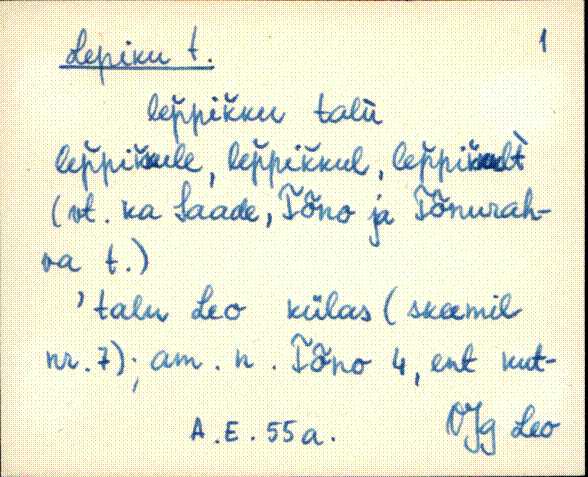 Lepiku t. 1
lep̆pik̆ku talù
lep̆pik̆kule, lep̆pik̆kul, lep̆pik̆kult̀
(vt. ka Saade, Tõno ja Tõnurah-
va t.)
'talu Leo külas (skeemil
nr. 7); am. n. Tõno 4, ent kut-
A.E. 55a. VJg Leo